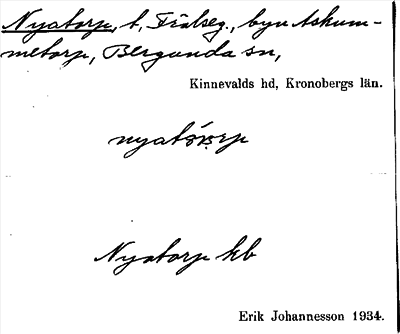 Nyatorp, t, Frälseg., byn Askum-
metorp, Bergunda sn,
Kinnevalds hd, Kronobergs län.
Nyatorp kb
Erik Johannesson 1934.